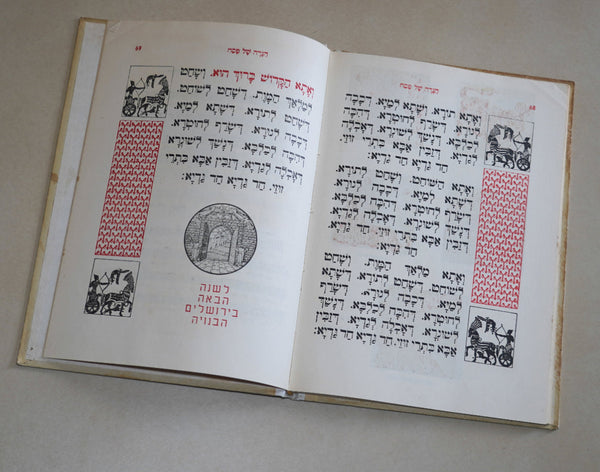 הגדה של פסח
68
וְאָתָא תוֹרָא. וְשָׁתָא לְמַיָּא. דְּכָבָה
לְנוּרָא. דְּשָׂרַף לְחוּטְרָא. דְּהִכָּה
לְכַלְבָּא. דְּנָשַׁךְ לְשׁוּנְרָא. דְּאָכְלָה
לְגַדְיָא. דְּזַבִּין אַבָּא בִּתְרֵי זוּזֵי.
חַד גַּדְיָא חַד גַּדְיָא:
וְאָתָא הַשּׁוֹחֵט. וְשָׁחַט לְתוֹרָא.
דְּשָׁתָא לְמַיָּא. דְּכָבָה לְנוּרָא.
דְּשָׂרַף לְחוּטְרָא. דְּהִכָּה לְכַלְבָּא.
דְּנָשַׁךְ לְשׁוּנְרָא. דְּאָכְלָה לְגַדְיָא.
דְּזַבִּין אַבָּא בִּתְרֵי זוּזֵי. חַד גַּדְיָא
חַד גַּדְיָא:
וְאָתָא מַלְאַךְ הַמָּוֶת. וְשָׁחַט
לְשׁוֹחֵט. דְּשָׁחַט לְתוֹרָא. דְּשָׁתָא
לְמַיָּא. דְּכָבָה לְנוּרָא. דְּשָׂרַף
לְחוּטְרָא. דְּהִכָּה לְכַלְבָּא. דְּנָשַׁךְ
לְשׁוּנְרָא. דְּאָכְלָה לְגַדְיָא. דְּזַבִּין
אַבָּא בִּתְרֵי זוּזֵי. חַד גַּדְיָא חַד גַּדְיָא:
הגדה של פסח
69
וְאָתָא הַקָּדוֹשׁ בָּרוּךְ הוּא. וְשָׁחַט
לְמַלְאַךְ הַמָּוֶת. דְּשָׁחַט לְשׁוֹחֵט.
דְּשָׁחַט לְתוֹרָא. דְּשָׁתָא לְמַיָּא.
דְּכָבָה לְנוּרָא. דְּשָׂרַף לְחוּטְרָא.
דְּהִכָּה לְכַלְבָּא. דְּנָשַׁךְ לְשׁוּנְרָא.
דְּאָכְלָה לְגַדְיָא. דְּזַבִּין אַבָּא בִּתְרֵי
זוּזֵי. חַד גַּדְיָא חַד גַּדְיָא:
לשנה
הבאה
בירושלים
הבנויה